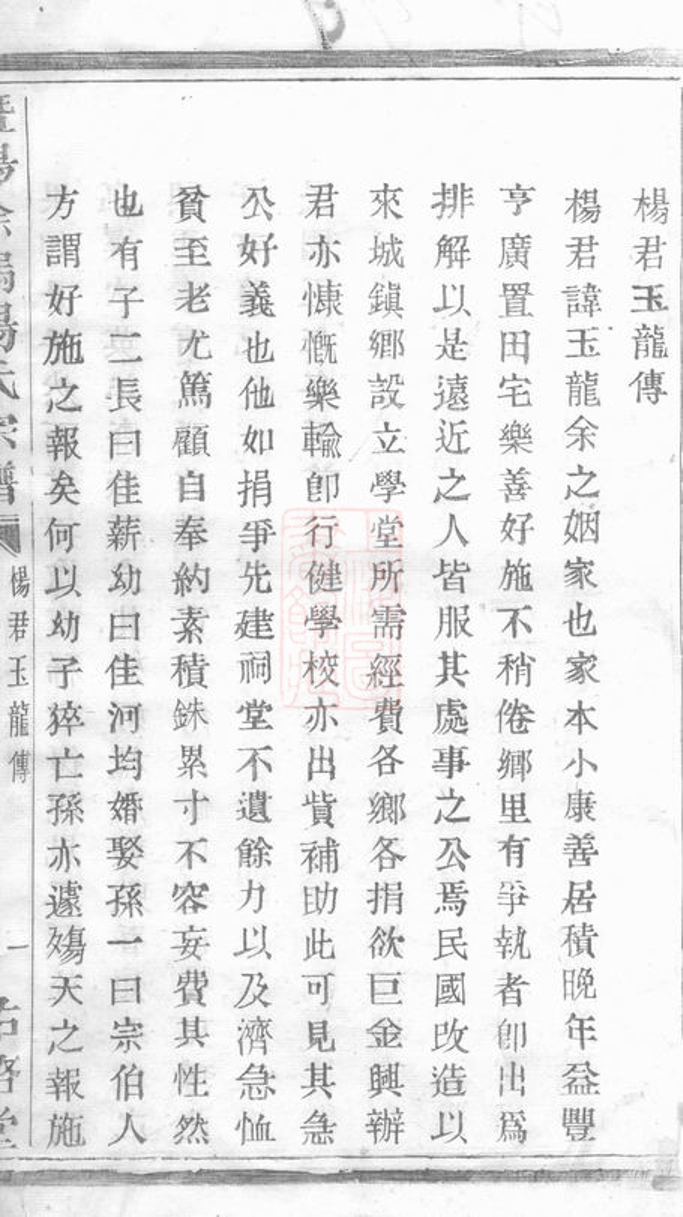 楊君玉龍傳
楊君諱玉龍余之姻家也家本小康善居積晚年益豐
亨廣置田宅樂善好施不稍倦鄉里有爭執者卽出爲
排解以是遠近之人皆服其處事之公焉民國改造以
來城鎭鄉設立學堂所需經費各鄉各捐欲巨金興辦
君亦慷慨樂輸卽行健學校亦出貲補助此可見其急
公好義也他如捐爭先建祠堂不遺餘力以及濟急恤
貧至老尤篤顧自奉約素積銖累寸不容妄費其性然
也有子二長曰佳薪幼曰佳河均婚娶孫一曰宗伯人
方謂好施之報矣何以幼子猝亡孫亦遽殤天之報施
楊氏宗譜
楊君玉龍傳
一